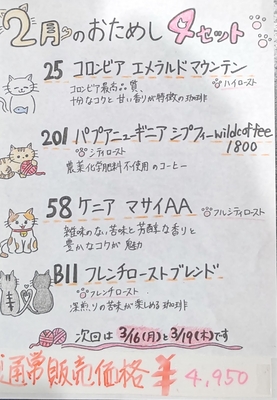 2月のおためし 4セット
25 コロンビア エメラルドマウンテン
ハイロースト
コロンビア最高品質、
十分なコクと甘い香りが特徴の珈琲
201 パプアニューギニア シグフィー wildcoffee
シティロースト
1800
農薬化学肥料不使用のコーヒー
58 ケニア マサイAA
フルシティロースト
雑味のない苦味と芳醇な香りと
豊かなコクが魅力
B11 フレンチローストブレンド
フレンチロースト
深煎りの苦味が楽しめる珈琲
次回は 3/16(月)と3/19(木)です
通常販売価格 ¥4,950